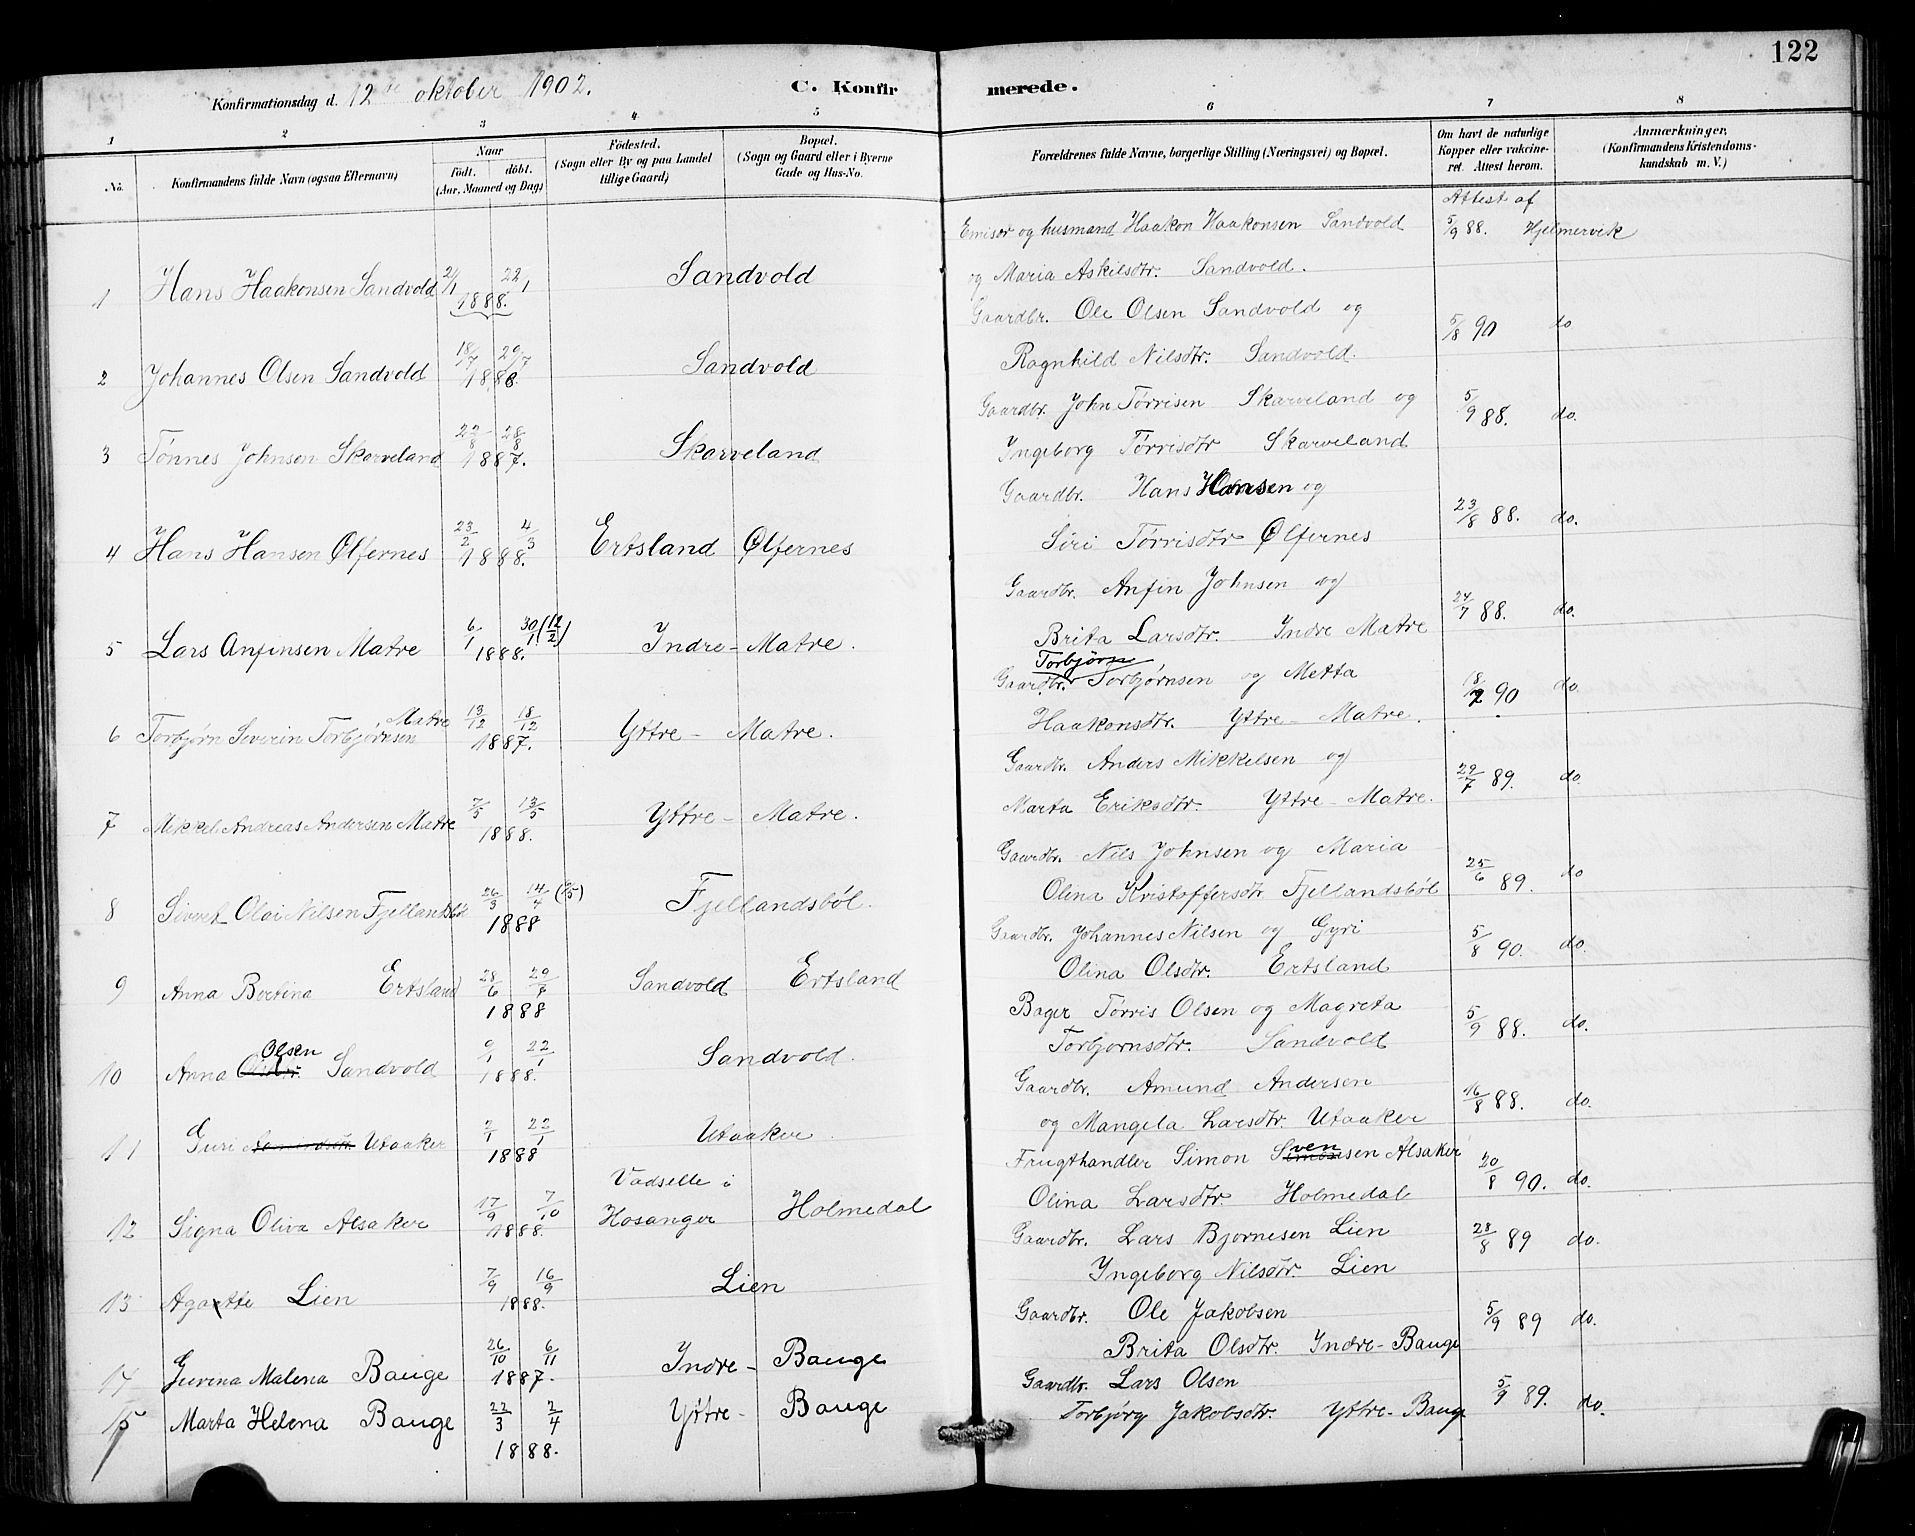 122
Konfirmationsdag d. 12te oktober 1902. C. Konfirmerede.
1 2 3 4 5 6 7 8
No. Konfirmandens fulde Navn (ogsaa Efternavn)
Naar
födt. döbt.
(Aar, Maaned og Dag)
Födested.
(Sogn eller By og paa Landet
tillige Gaard)
Bopæl.
(Sogn og Gaard eller i Byerne
Gade og Hus-No.
Forældrenes fulde Navne, borgerlige Stilling (Næringsvei) og Bopæl.
Om havt de naturlige
Kopper eller vakcine-
ret. Attest herom.
Anmærkninger,
(Konfirmandens Kristendoms-
kundskab m. V.)
Attest af
1 Hans Haakonsen Sandvold 2/1 22/1 1888. Sandvold
Emisær og husmand Haakon Haakonsen Sandvold 5/9 88. Hjelmervik
og Maria Askilsdtr. Sandvold.
2 Johannes Olsen Sandvold 18/7 29/7 1888. Sandvold
Gaardbr. Ole Olsen Sandvold og 5/8 90 do
Ragnhild Nilsdtr. Sandvold.
3 Tønnes Johnsen Skarveland 22/8 28/8 1887. Skarveland
Gaardbr. John Tørrisen Skarveland og 5/9 88. do.
Ingeborg Tørrisdtr Skarveland
4 Hans Hansen Ølfernes 23/2 4/3 1888. Ertsland Ølfernes
Gaardbr. Hans Hansen og 23/8 88. do.
Siri Tørrisdtr Ølfernes
5 Lars Anfinsen Matre 6/1 30/1 (12/2) 1888. Indre-Matre.
Gaardbr. Anfin Johnsen og 24/7 88. do.
Brita Larsdtr. Indre Matre
6 Torbjørn Severin Torbjørnsen Matre 13/12 18/12 1887. Yttre-Matre.
Torbjørn
Gaardbr. Torbjørnsen og Metta 18/7 90 do.
Haakonsdtr. Yttre-Matre.
7 Mikkel Andreas Andersen Matre 7/5 13/5 1888. Yttre-Matre.
Gaardbr. Anders Mikkelsen og 29/7 89. do.
Marta Eriksdtr. Yttre-Matre.
8 Sivert Olai Nilsen Fjellandsböl 26/3 14/4 1888 Fjellandsböl.
Gaardbr. Nils Johnsen og Maria 25/6 89. do
Olina Kristoffersdtr Fjellandsböl
9 Anna Bertina Ertsland 28/6 29/7 1888 Sandvold Ertsland
Gaardbr. Johannes Nilsen og Gyri 5/8 90. do.
Olina Olsdtr. Ertsland
10 Anna Olsen Sandvold 9/1 22/1 1888. Sandvold.
Bager Tørris Olsen og Magreta 5/9 88. do.
Torbjornsdtr. Sandvold
11 Guri Utaaker 2/1 22/1 1888 Utaaker.
Gaardbr. Amund Andersen 16/8 88. do.
og Mangela Larsdtr. Utaaker
12 Signa Oliva Alsaker 17/9 7/10 1888. Vadselle i
Hosanger Holmedal
Frugthandler Simon Svensen Alsaker 20/8 90. do.
Olina Larsdtr. Holmedal
13 Agatte Lien 7/9 16/9 1888. Lien
Gaardbr. Lars Bjørnesen Lien 28/8 89 do.
Ingeborg Nilsdtr. Lien
14 Gurina Malena Bauge 26/10 6/11 1887. Indre-Bauge
Gaardbr. Ole Jakobsen 5/9 89 do.
Brita Olsdtr. Indre-Bauge
15 Marta Helena Bauge 22/3 2/4 1888. Yttre-Bauge
Gaardbr. Lars Olsen 5/9 89. do.
Torbjørg Jakobsdtr. Yttre-Bauge